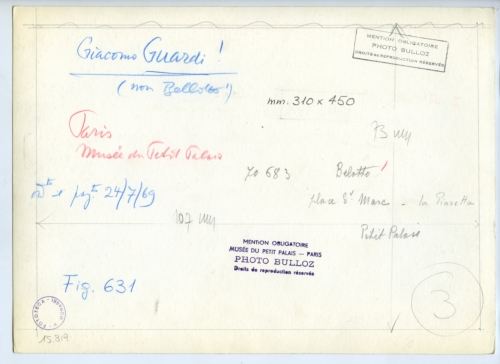 Giacomo Guardi !
(non Bellotto !)
MENTION OBLIGATOIRE
PHOTO BULLOZ
DROITS de REPRODUCTION RÉSERVÉS
mm. 310 x 450
Paris
Musée du Petit Palais
73 mm
70 683
Belotto !
place St Marc - la Piazetta
Petit Palais
24/7/69
107 mm
MENTION OBLIGATOIRE
MUSÉE DU PETIT PALAIS — PARIS
PHOTO BULLOZ
Droits de reproduction réservés
Fig. 631
3
FOTOTECA
15819